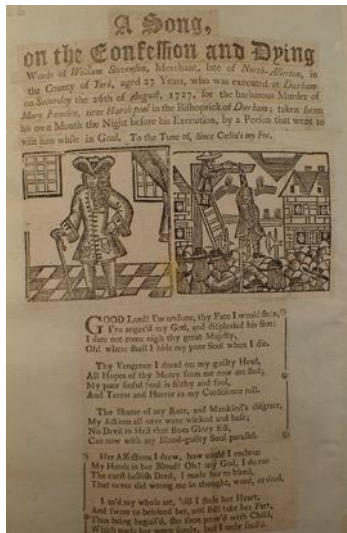 A Song,
on the Confession and Dying
Words of William Stevenson, Merchant, late of North-Allerton, in
the County of York, aged 27 Years, who was executed at Durham
on Saturday the 26th of August, 1727, for the barbarous Murder of
Mary Fawden, near Hartlepool in the Bishoprick of Durham; taken from
his own Mouth the Night before his Execution, by a Person that went to
visit him while in Goal. To the Tune of, Since Cælia's my Foe.
GOOD Lord! I'm undone, thy Face I would shun,
I've anger'd my God, and displeas'd his Son:
I dare not come nigh thy great Majesty,
Oh! where shall I hide my poor Soul when I die.
Thy Vengence I dread on my guilty Head,
All Hopes of thy Mercy from me now are fled;
My poor sinful Soul is filthy and foul,
And Terror and Horror in my Conscience roll.
The Shame of my Race, and Mankind's disgrace,
My Actions all over were wicked and base;
No Devil in Hell that from Glory fell,
Can now with my Blood-guilty Soul parallel.
Her Affections I drew, how could I embrue
My Hands in her Blood? Oh! my God, I do rue
The curst hellish Deed, I made her to bleed,
That never did wrong me in thought, word, or deed.
I us'd my whole art, 'till I stole her Heart,
And swore to befriend her, and still take her Part,
Thus being beguil'd, she then prov'd with Child,
Which made her